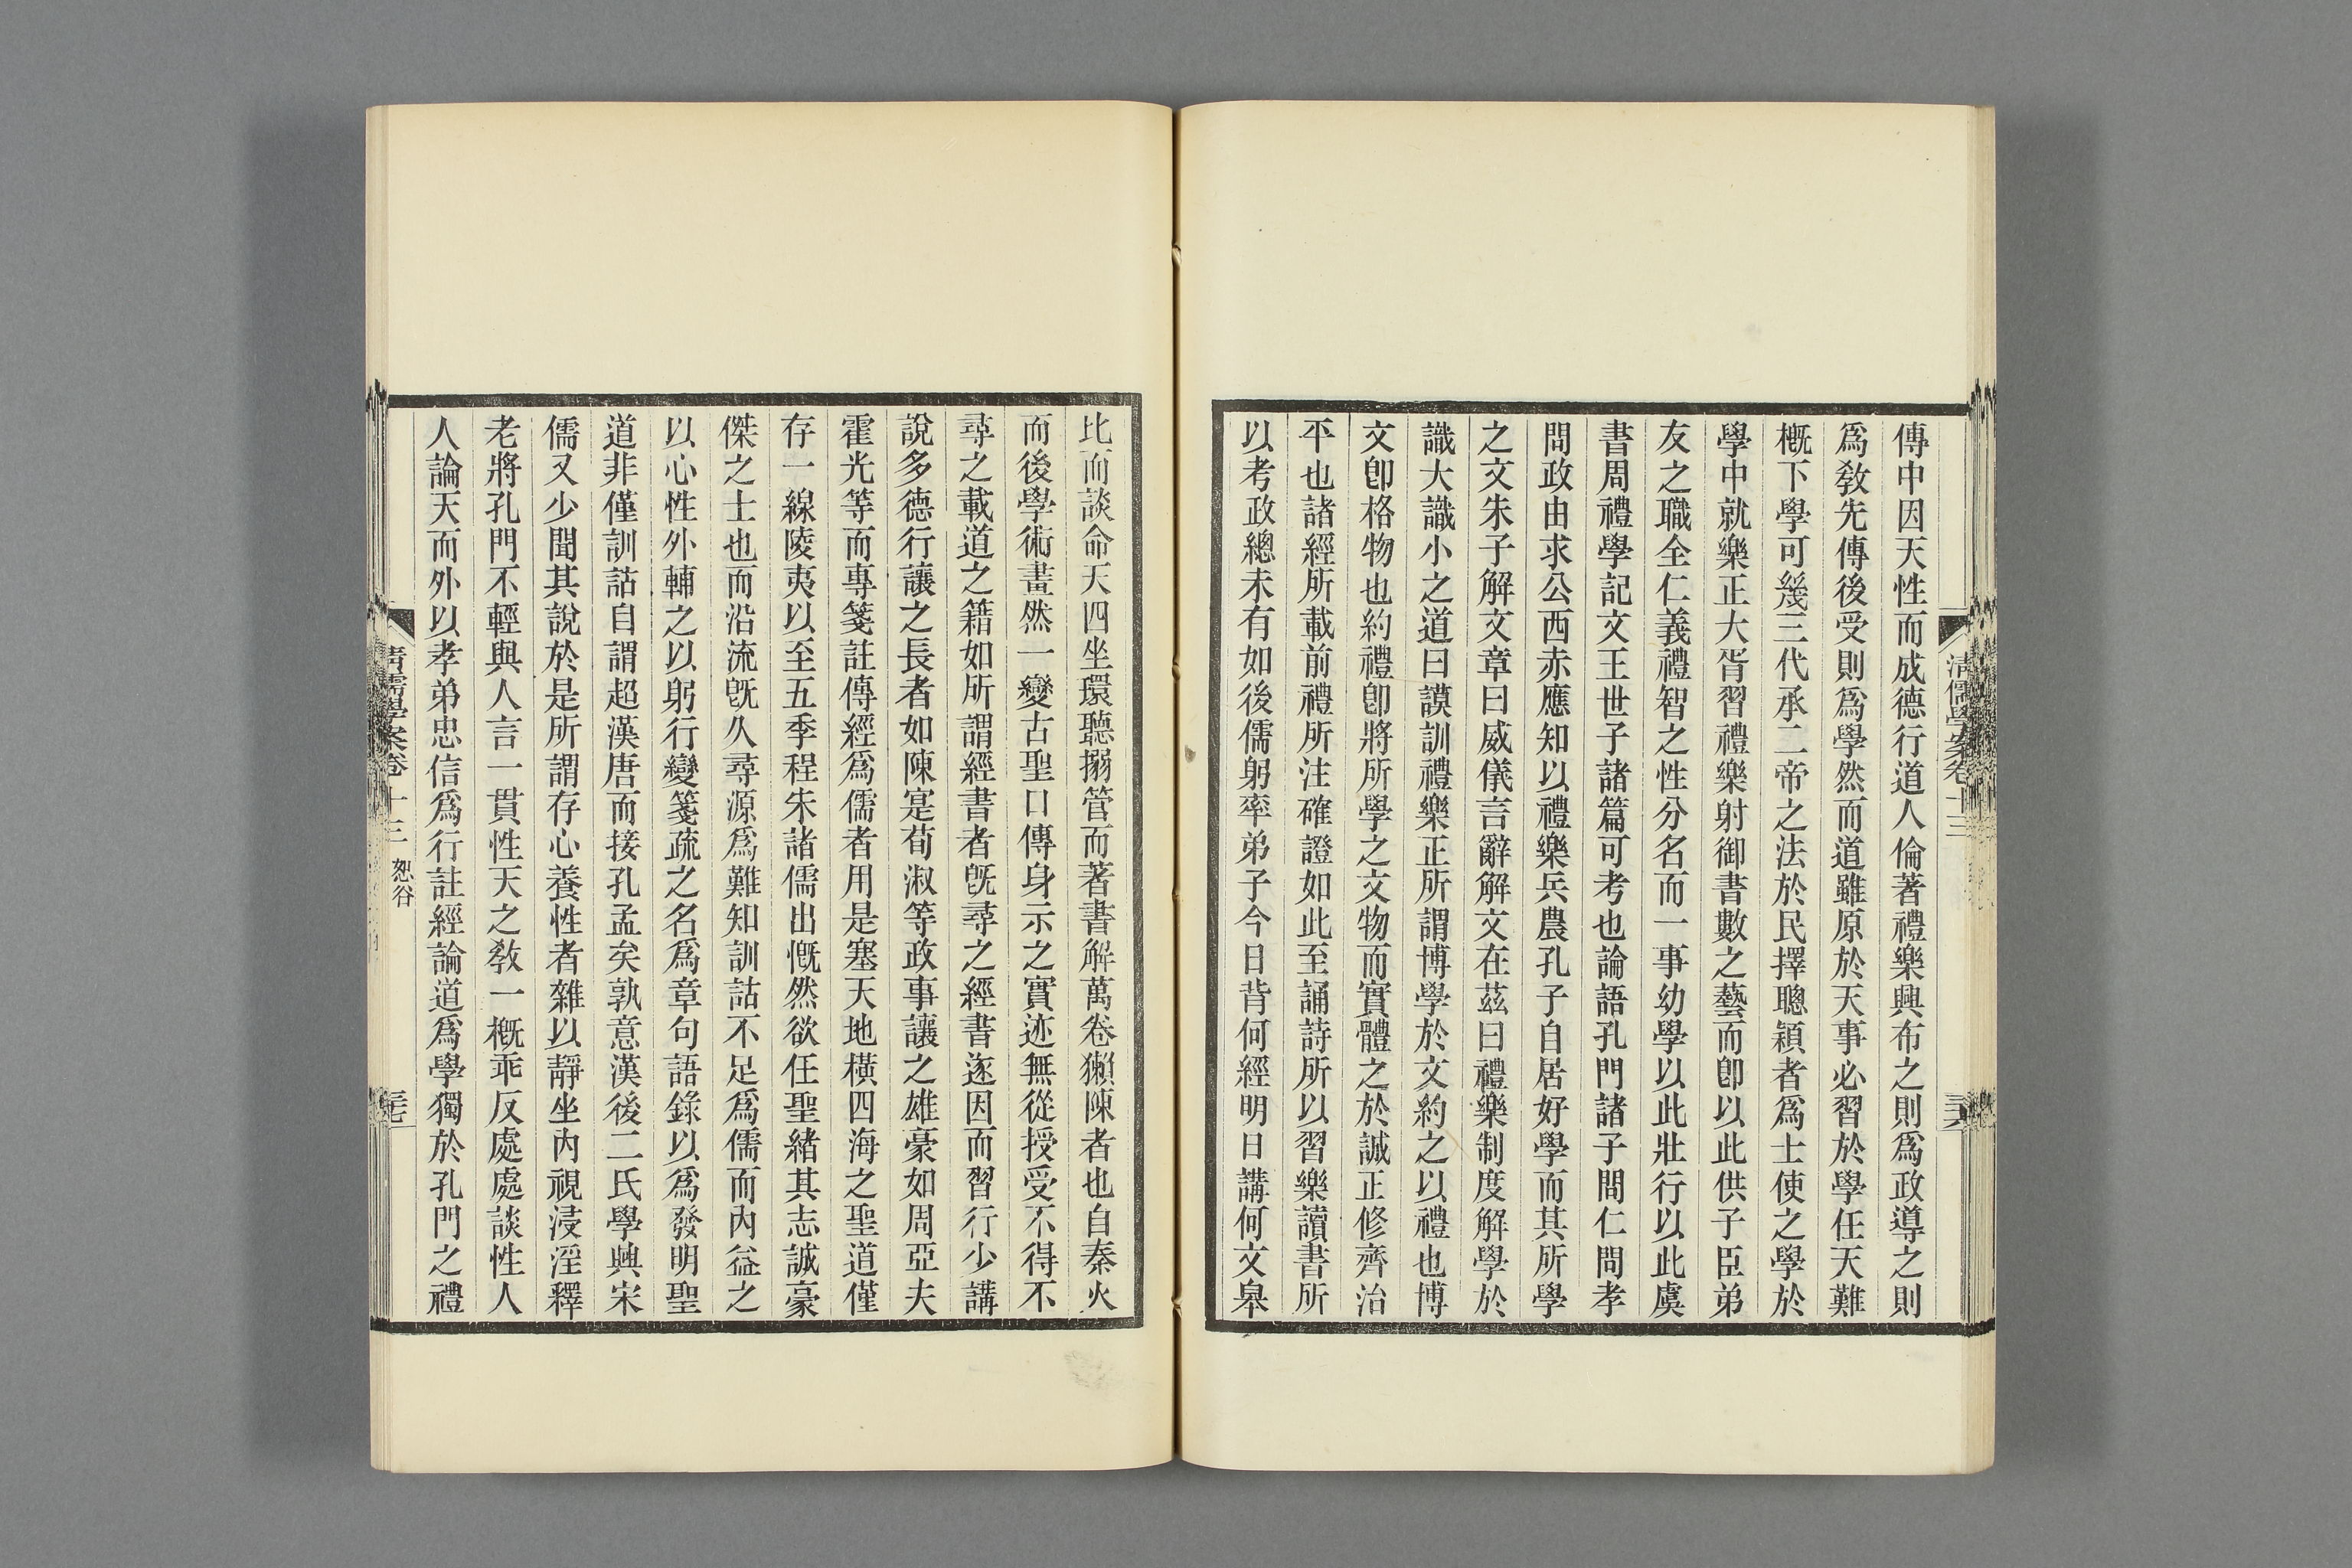 清儒學案卷十三
三六
傳中因天性而成德行道人倫著禮樂興布之則爲政導之則
爲敎先傳後受則爲學然而道雖原於天事必習於學任天難
槪下學可幾三代承二帝之法於民擇聰穎者爲士使之學於
學中就樂正大胥習禮樂射御書數之藝而卽以此供子臣弟
友之職全仁義禮智之性分名而一事幼學以此壯行以此虞
書周禮學記文王世子諸篇可考也論語孔門諸子問仁問孝
問政由求公西赤應知以禮樂兵農孔子自居好學而其所學
之文朱子解文章曰威儀言辭解文在茲曰禮樂制度解學於
識大識小之道曰謨訓禮樂正所謂博學於文約之以禮也博
文卽格物也約禮卽將所學之文物而實體之於誠正修齊治
平也諸經所載前禮所注確證如此至誦詩所以習樂讀書所
以考政總未有如後儒躬率弟子今日背何經明日講何文皋
比而談命天四坐環聽搦管而著書解萬卷獺陳者也自秦火
而後學術畫然一變古聖口傳身示之實迹無從授受不得不
尋之載道之籍如所謂經書者旣尋之經書遂因而習行少講
說多德行讓之長者如陳寔荀淑等政事讓之雄豪如周亞夫
霍光等而專箋註傳經爲儒者用是塞天地橫四海之聖道僅
存一線陵夷以至五季程朱諸儒出慨然欲任聖緖其志誠豪
傑之士也而沿流旣久尋源爲難知訓詁不足爲儒而內益之
以心性外輔之以躬行變箋疏之名爲章句語錄以爲發明聖
道非僅訓詁自謂超漢唐而接孔孟矣孰意漢後二氏學興宋
儒又少聞其說於是所謂存心養性者雜以靜坐內視浸淫釋
老將孔門不輕與人言一貫性天之敎一槪乖反處處談性人
人論天而外以孝弟忠信爲行註經論道爲學獨於孔門之禮
清儒學案卷十三 恕谷
三七